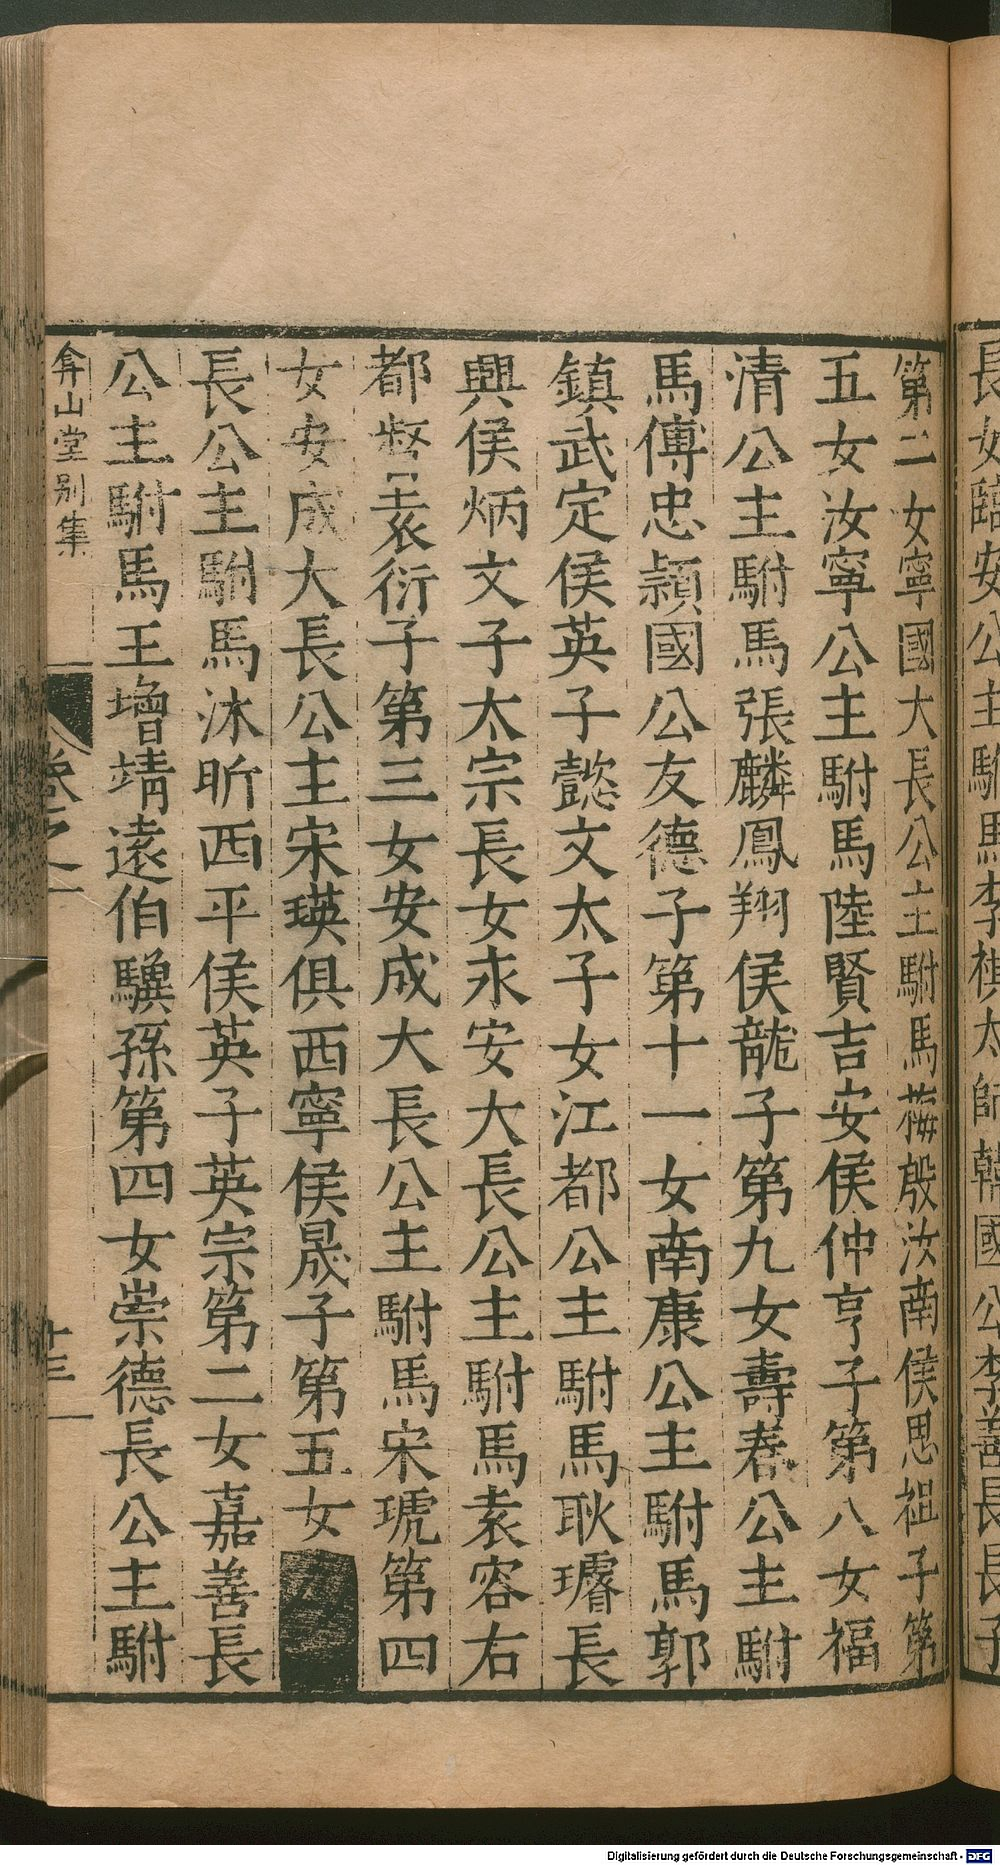 長女臨安公主駙馬李祺太師韓國公李善長長子
第二女寧國大長公主駙馬梅殷汝南侯思祖子第
五女汝寧公主駙馬陸賢吉安侯仲亨子第八女福
清公主駙馬張麟鳳翔侯龍子第九女壽春公主駙
馬傅忠潁國公友德子第十一女南康公主駙馬郭
鎮武定侯英子懿文太子女江都公主駙馬耿璿長
興侯炳文子太宗長女永安大長公主駙馬袁容右
都督袁衍子第三女安成大長公主駙馬宋琥第四
女安成大長公主宋瑛俱西寧侯晟子第五女
長公主駙馬沐昕西平侯英子英宗第二女嘉善長
公主駙馬王增靖遠伯驥孫第四女崇德長公主駙
弇山堂別集
卷之一
十三
Digitalisierung gefördert durch die Deutsche Forschungsgemeinschaft - DFG